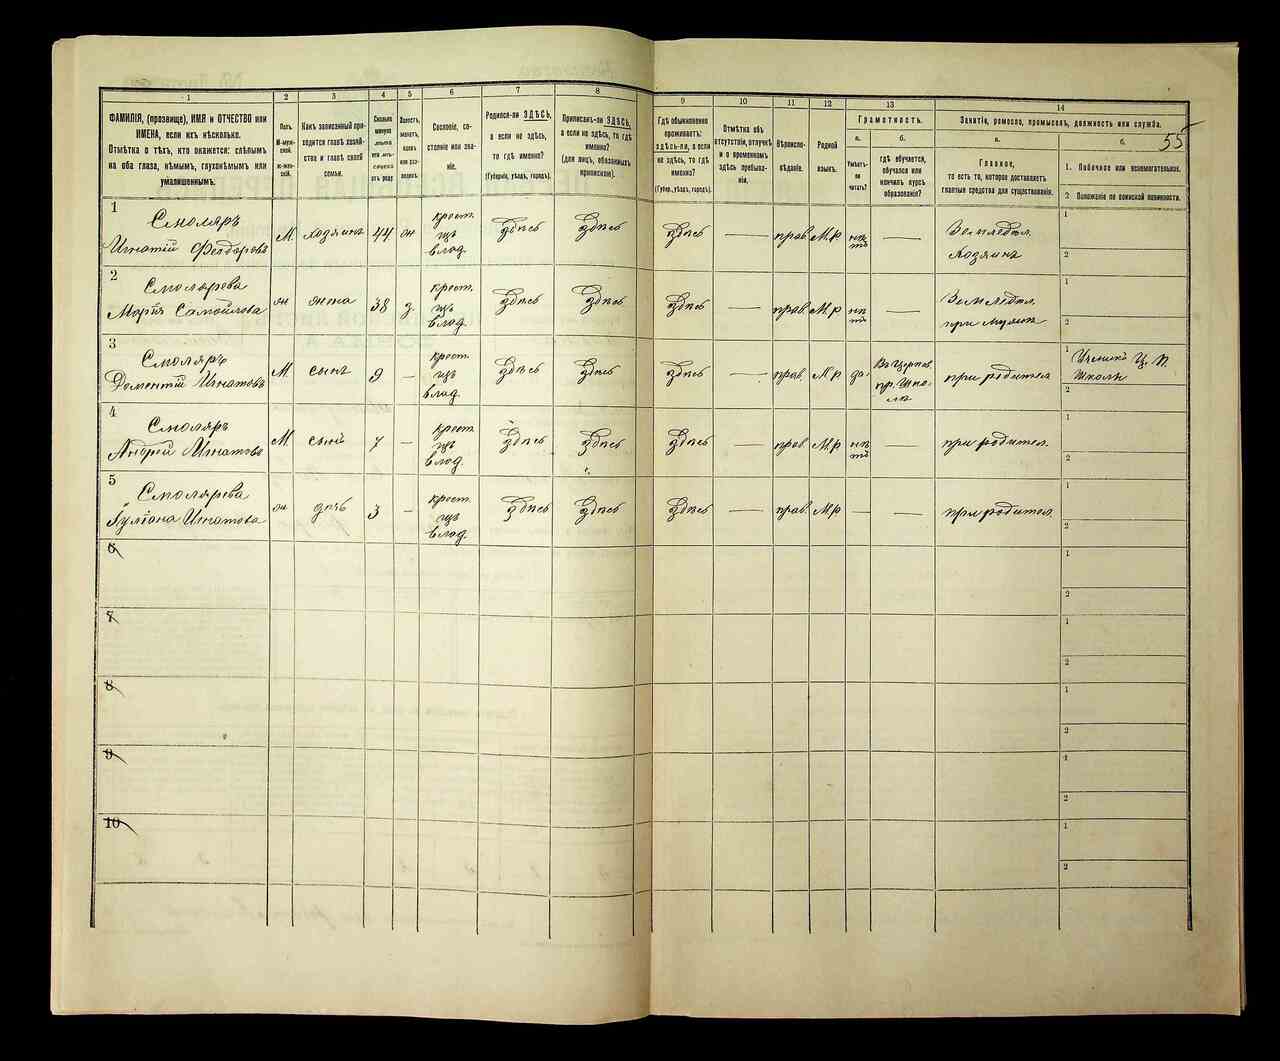 1
2
3
4
5
6
7
8
9
10
11
12
13
14
ФАМИЛІЯ, (прозвище), ИМЯ и ОТЧЕСТВО или
ИМЕНА, если ихъ нѣсколько.
Отмѣтка о тѣхъ, кто окажется: слѣпымъ
на оба глаза, нѣмымъ, глухонѣмымъ или
умалишеннымъ.
Полъ.
М-муж-
ской.
Ж-жен-
скій.
Какъ записанный при-
ходится главѣ хозяй-
ства и главѣ своей
семьи.
Сколько
минуло
лѣтъ
или мѣ-
сяцевъ
отъ роду
Холостъ,
женатъ,
вдовъ
или раз-
веденъ.
Сословіе, со-
стояніе или зва-
ніе.
Родился-ли ЗДѢСЬ,
а если не здѣсь,
то гдѣ именно?
(Губернія, уѣздъ, городъ).
Приписанъ-ли ЗДѢСЬ,
а если не здѣсь, то гдѣ
именно?
(для лицъ, обязанныхъ
припискою).
Гдѣ обыкновенно
проживаетъ:
здѣсь-ли, а если
не здѣсь, то гдѣ
именно?
(Губер., уѣздъ, городъ).
Отмѣтка объ
отсутствіи, отлучкѣ
и о временномъ
здѣсь пребыва-
ніи.
Вѣроиспо-
вѣданіе.
Родной
языкъ.
Грамотность.
а.
Умѣетъ-
ли
читать?
б.
гдѣ обучается,
обучался или
кончилъ курсъ
образованія?
Занятіе, ремесло, промыселъ, должность или служба.
а.
Главное,
то есть то, которое доставляетъ
главныя средства для существованія.
б.
55
1. Побочное или вспомогательное.
2 Положеніе по воинской повинности.
1
Смоляръ
Игнатій Федоровъ
М
хозяинъ
44
он
крест.
щъ
влад.
здѣсь
здѣсь
здѣсь
—
прав.
М.р
нѣ
тъ
—
Земледѣл.
Хозяинъ
1
2
2
Смолярева
Марія Самойлова
жн
жена
38
з.
крест.
щъ
влад.
здѣсь
здѣсь
здѣсь
—
прав.
М.р
нѣ
тъ
—
Земледѣл.
при мужѣ
1
2
3
Смоляръ
Доментій Игнатовъ
М.
сынъ
9
—
крест.
щъ
влад.
здѣсь
здѣсь
здѣсь
—
прав.
М.р
да.
Въ Церков.
пр. Шко-
лѣ
при родителѣ
1
Ученикъ Ц. П.
Школы
2
4
Смоляръ
Андрей Игнатовъ
М
сынъ
7
—
крест.
щъ
влад.
здѣсь
здѣсь
здѣсь
—
прав.
М.р
нѣ
тъ
—
при родител.
1
2
5
Смолярева
Іуліана Игнатова
жн
дочь
3
—
крест.
щъ
влад.
здѣсь
здѣсь
здѣсь
—
прав.
М.р
—
—
при родител.
1
2
6
1
2
7
1
2
8
1
2
9
1
2
10
1
2